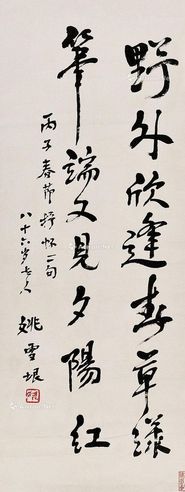 野外欣逢春草漾
笔端又見夕陽红
丙子春節抒怀二句
八十六岁老人
姚雪垠